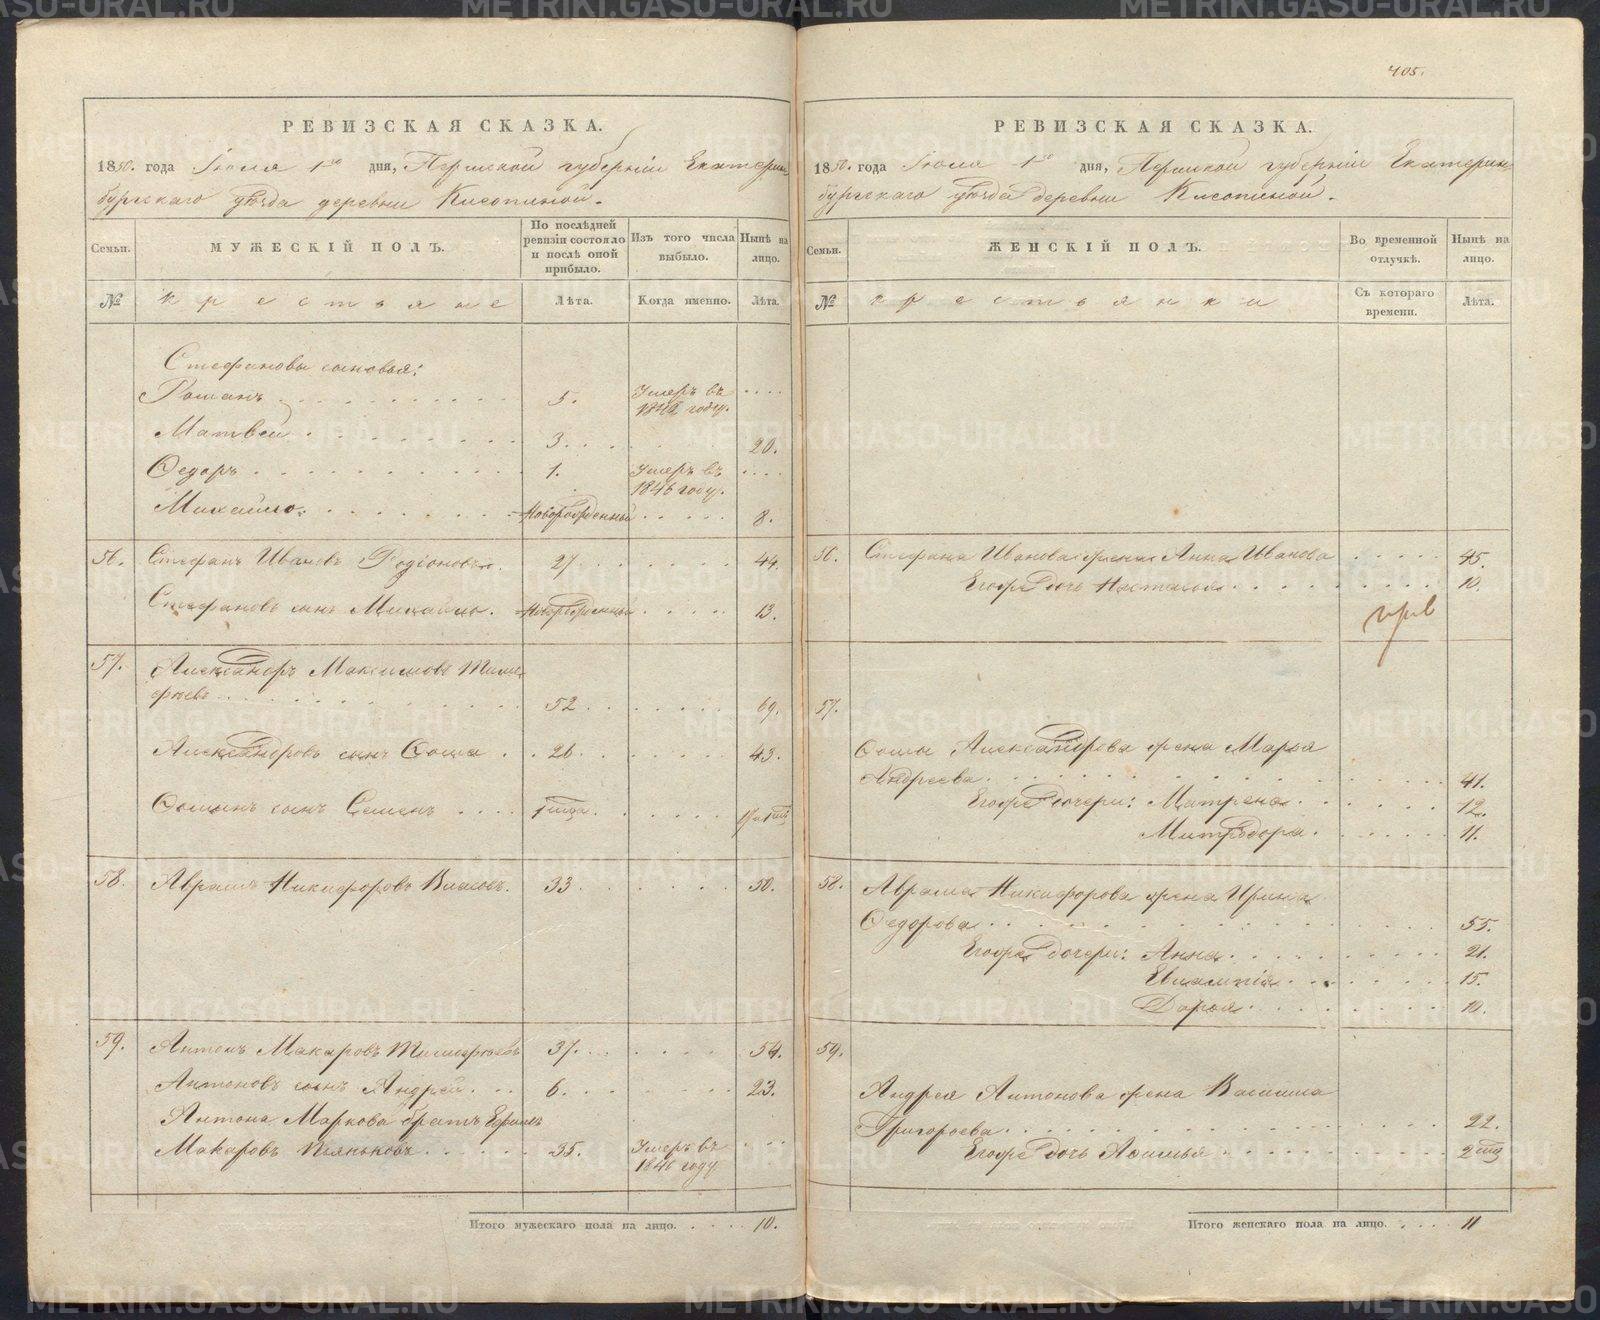 405.
РЕВИЗСКАЯ СКАЗКА.
1850. года Іюля 1го дня, Пермской губерніи Екатерин-
бургскаго уѣзда деревни Кисотиной.
Семьи.
МУЖЕСКІЙ ПОЛЪ.
По послѣдней ревизіи состояло и послѣ оной прибыло.
Изъ того числа выбыло.
Нынѣ на лицо.
№
крестьяне
Лѣта.
Когда именно.
Лѣта.
Стефановы сыновья:
Романъ 5. Умеръ въ
году.
Матвей 3. 20.
Федоръ 1. Умеръ въ
1846 году.
Михайло. Новорожденный 8.
56. Стефанъ Ивановъ Родіоновъ. 27 44.
Стефановъ сынъ Михайло. Новорожденный 13.
57. Александръ Максимовъ Тимо-
фѣевъ 52 69.
Александровъ сынъ Фома 26. 43.
Фоминъ сынъ Семенъ
58. Аврамъ Никифоровъ Власовъ. 33. 50.
59. Антонъ Макаровъ Тимофѣевъ 37. 54.
Антоновъ сынъ Андрей 6. 23.
Антона Маркова братъ Ефимъ
Макаровъ Пьянковъ 35. Умеръ въ
1846 году
Итого мужескаго пола на лицо. 10.
РЕВИЗСКАЯ СКАЗКА.
1850. года Іюля 1го дня, Пермской губерніи Екатерин-
бургскаго уѣзда деревни Кисотиной.
Семьи.
ЖЕНСКІЙ ПОЛЪ.
Во временной отлучкѣ.
Нынѣ на лицо.
№
крестьянки
Съ котораго времени.
Лѣта.
56. Стефана Иванова жена Анна Иванова 45.
Егоже дочь Наталья 10.
57.
Фомы Александрова жена Марья
Андреева. 41.
Егоже дочери: Матрена 12.
Митродора. 11.
58. Аврама Никифорова жена Ирина
Федорова 55.
Егоже дочери: Анна 21.
Евлампія 15.
Дарья 10.
59.
Андрея Антонова жена Василиса
Григорьева 22.
Егоже дочь Афимья
Итого женскаго пола на лицо. 11
METRIKI.GASO-URAL.RU